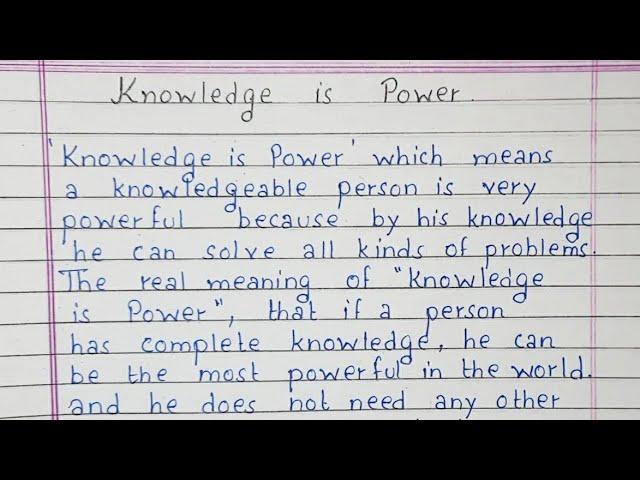 Knowledge is Power.
'Knowledge is Power' which means
a knowledgeable person is very
powerful because by his knowledge
he can solve all kinds of problems.
The real meaning of "Knowledge
is Power", that if a person
has complete knowledge, he can
be the most powerful in the world.
and he does not need any other